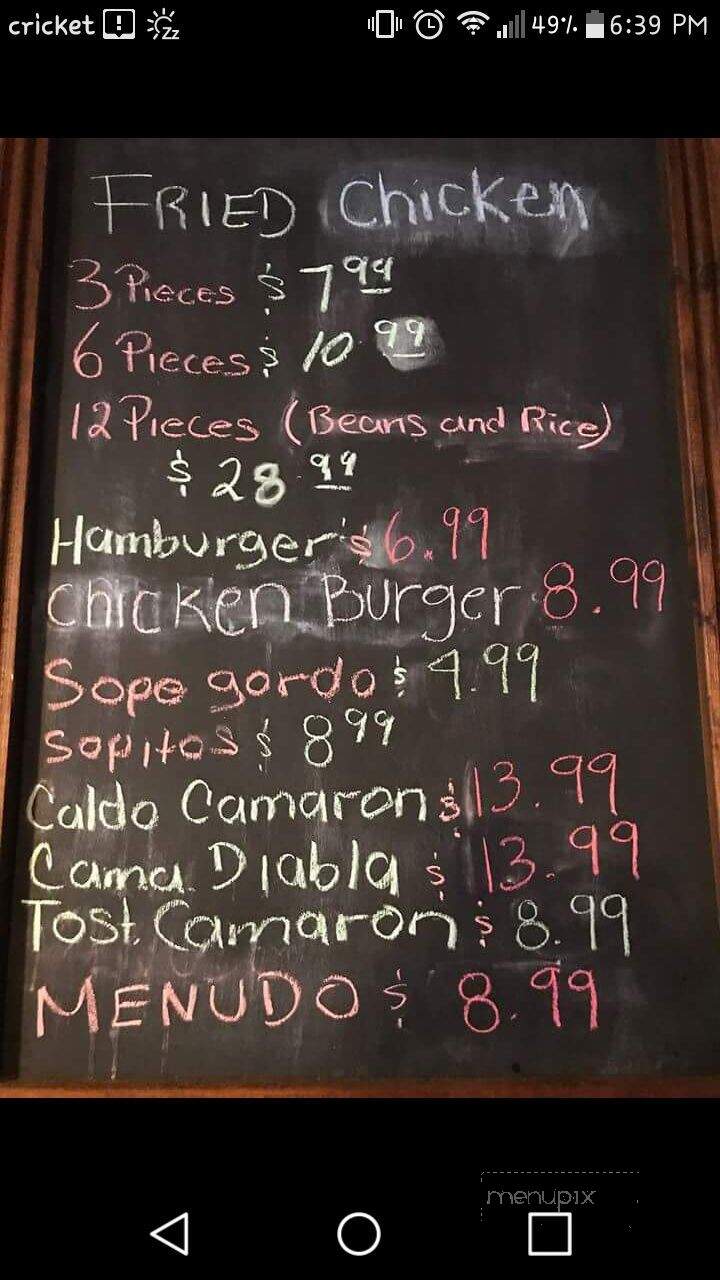 cricket 49% 6:39 PM
FRIED Chicken
3 Pieces $ 7.99
6 Pieces $ 10.99
12 Pieces (Beans and Rice)
$ 28.99
Hamburger's $6.99
Chicken Burger 8.99
Sope gordo $ 4.99
Sopitos $ 8.99
Caldo Camaron $13.99
Cama. Diabla $ 13.99
Tost. Camaron $ 8.99
MENUDO $ 8.99
menupix